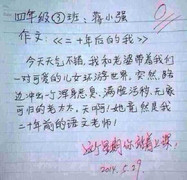 四年级③班 蒋小强
作文：《二十年后的我》
今天天气不错，我和老婆带着我们
一对可爱的儿女环游世界，突然，路
边冲出一个浑身恶臭、满脸污秽、无家
可归的老太太，天啊！她竟然是我
二十年前的语文老师！
你站着上课
2014.5.29.